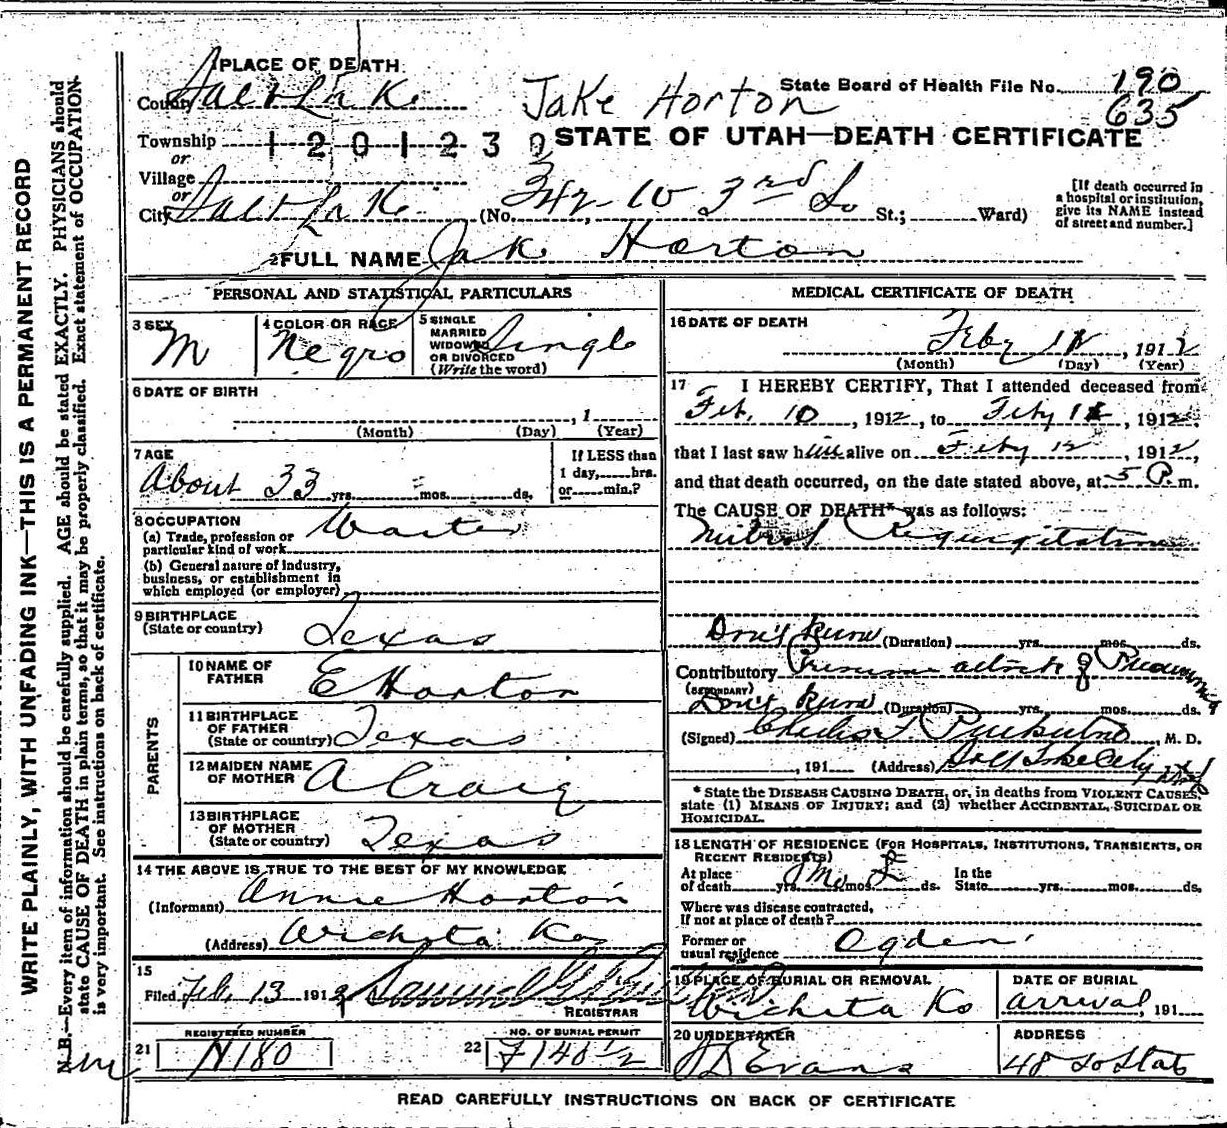 WRITE PLAINLY, WITH UNFADING INK—THIS IS A PERMANENT RECORD
N. B.—Every item of information should be carefully supplied. AGE should be stated EXACTLY. PHYSICIANS should
state CAUSE OF DEATH in plain terms, so that it may be properly classified. Exact statement of OCCUPATION
is very important. See instructions on back of certificate.
1 PLACE OF DEATH
County Salt Lake
Jake Horton
State Board of Health File No. 190
635
Township 120123
or
STATE OF UTAH—DEATH CERTIFICATE
Village
or
City Salt Lake (No. 342 W 3rd So St.; Ward)
[If death occurred in
a hospital or institution,
give its NAME instead
of street and number.]
2 FULL NAME Jake Horton
PERSONAL AND STATISTICAL PARTICULARS
3 SEX
M
4 COLOR OR RACE
Negro
5 SINGLE
MARRIED
WIDOWED
OR DIVORCED
(Write the word)
Single
6 DATE OF BIRTH
, 1
(Month) (Day) (Year)
7 AGE
About 33 yrs. mos. ds.
If LESS than
1 day, hrs.
or min.?
8 OCCUPATION
(a) Trade, profession or
particular kind of work
Waiter
(b) General nature of industry,
business, or establishment in
which employed (or employer)
9 BIRTHPLACE
(State or country)
Texas
PARENTS
10 NAME OF
FATHER
E Horton
11 BIRTHPLACE
OF FATHER
(State or country)
Texas
12 MAIDEN NAME
OF MOTHER
A Craig
13 BIRTHPLACE
OF MOTHER
(State or country)
Texas
14 THE ABOVE IS TRUE TO THE BEST OF MY KNOWLEDGE
(Informant) Annie Horton
(Address) Wichita Ks
15
Filed Feb. 13 1912 Samuel G
REGISTRAR
REGISTERED NUMBER
21 H180
NO. OF BURIAL PERMIT
22 F140 1/2
MEDICAL CERTIFICATE OF DEATH
16 DATE OF DEATH
Feby 12, 1912
(Month) (Day) (Year)
17 I HEREBY CERTIFY, That I attended deceased from
Feb. 10, 1912, to Feby 12, 1912,
that I last saw him alive on Feby 12, 1912,
and that death occurred, on the date stated above, at 5 P. m.
The CAUSE OF DEATH* was as follows:
Mitral Regurgitation
Don't know (Duration) yrs. mos. ds.
Contributory Previous attack of
(SECONDARY)
Don't know (Duration) yrs. mos. ds.
(Signed) Charles F , M. D.
, 191 (Address) Salt Lake City Utah
* State the DISEASE CAUSING DEATH, or, in deaths from VIOLENT CAUSES,
state (1) MEANS OF INJURY; and (2) whether ACCIDENTAL, SUICIDAL OR
HOMICIDAL.
18 LENGTH OF RESIDENCE (FOR HOSPITALS, INSTITUTIONS, TRANSIENTS, OR
RECENT RESIDENTS)
At place
of death yrs. mos. ds.
In the
State yrs. mos. ds.
Where was disease contracted,
If not at place of death?
Former or
usual residence Ogden
19 PLACE OF BURIAL OR REMOVAL
Wichita Ks
DATE OF BURIAL
arrival, 191
20 UNDERTAKER
Evans
ADDRESS
48 So State
READ CAREFULLY INSTRUCTIONS ON BACK OF CERTIFICATE